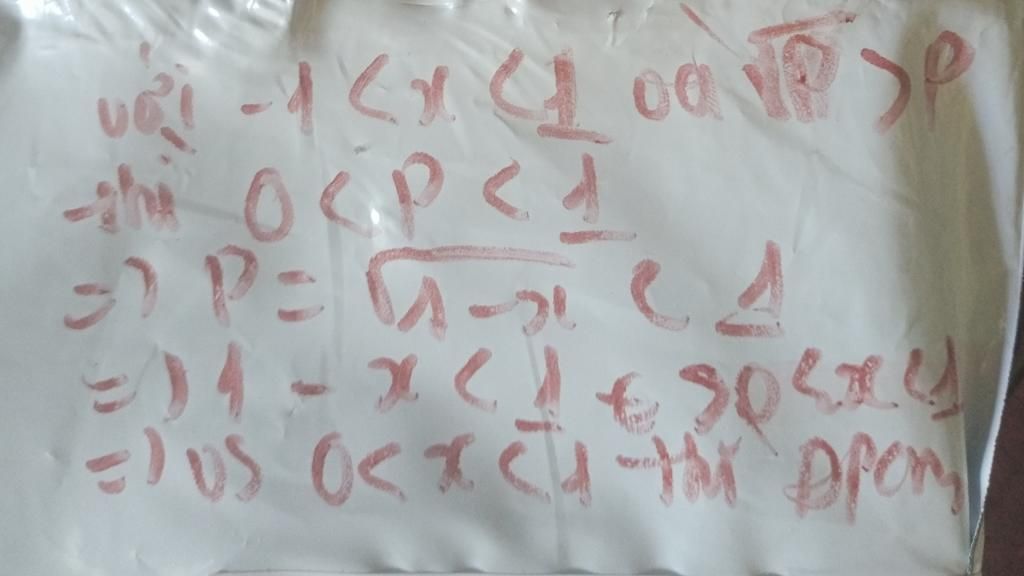 với -1 < x < 1 và √P > P
thì 0 < P < 1
=> P = √1-x < 1
=> 1 - x < 1 <=> 0 < x < 1
=> vs 0 < x < 1 thì Đpcm